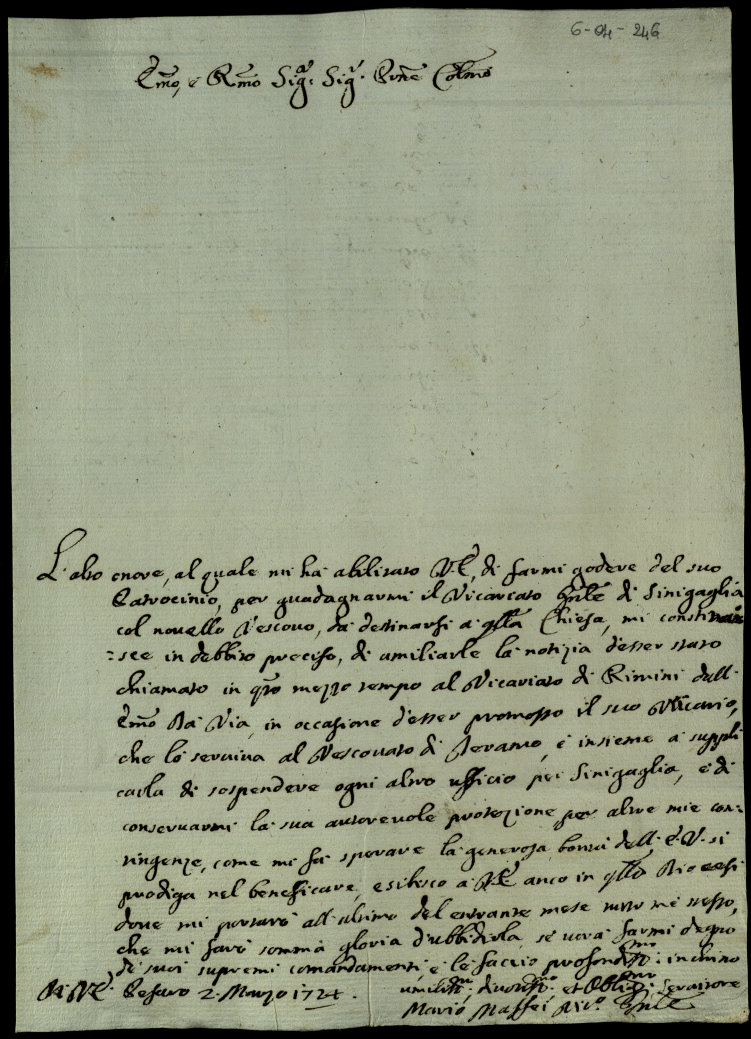 6-04-246
Emo, e Rmo Sigr. Sigr. Prne Colmo
L'alto onore, al quale mi ha abilitato V.E., di farmi godere del suo
Patrocinio, per guadagnarmi il Vicariato Gnle di Sinigaglia
col novello Vescovo, da destinarsi a qlla Chiesa, mi constitui
=sce in debbito preciso, di umiliarle la notizia d'esser stato
chiamato in qto mezzo tempo al Vicariato di Rimini dall'
Emo Da Via, in occasione d'esser promosso il suo Vicario,
che lo serviva al Vescovato di Teramo, e insieme a suppli
carla di sospendere ogni altro ufficio pei Sinigaglia, e di
conservarmi la sua autorevole protezione per altre mie con=
tingenze, come mi fa sperare la generosa bontà dell'E.V. si
prodiga nel beneficare, esibisco a V.E. anco in qlla Diocesi
dove mi portarò all'ultimo del entrante mese tutto me stesso,
che mi farò somma gloria d'ubbidirla, se vorà farmi degno
de suoi supremi comandamenti, e le faccio profondissmo inchino
Di V.E. Pesaro 2. Marzo 1724.
umilissmo divotissmo et Obligmo Servitore
Mario Maffei Vico. Gnle